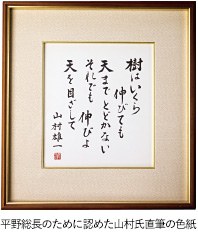 樹はいくら
伸びても
天までとどかない
それでも伸びよ
天を目ざして
山村雄一
平野総長のために認めた山村氏直筆の色紙